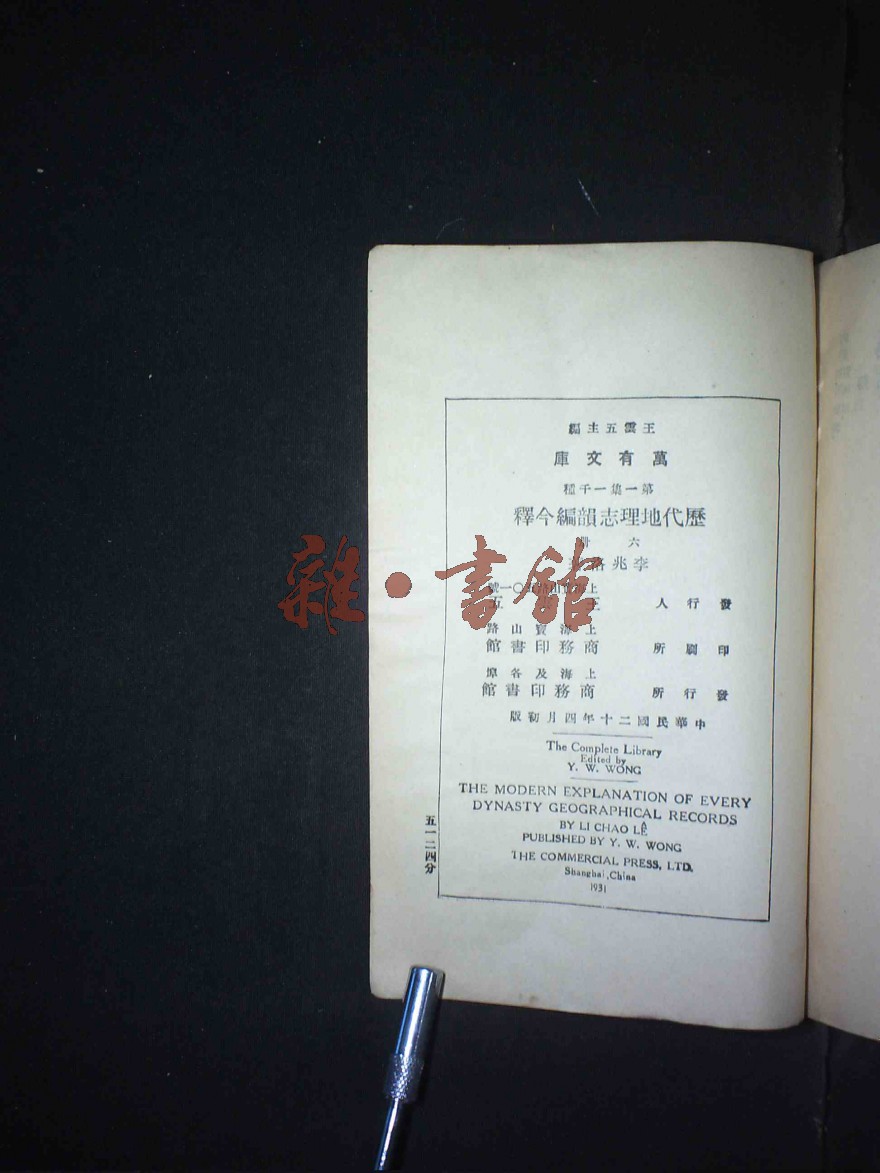 王雲五主編
萬有文庫
第一集一千種
歷代地理志韻編今釋
六冊
李兆洛
上海寶山路五〇一號
發行人 王 五
上海寶山路
印刷所 商務印書館
上海及各埠
發行所 商務印書館
中華民國二十年四月初版
The Complete Library
Edited by
Y. W. WONG
THE MODERN EXPLANATION OF EVERY
DYNASTY GEOGRAPHICAL RECORDS
BY LI CHAO LÊ
PUBLISHED BY Y. W. WONG
THE COMMERCIAL PRESS, LTD.
Shanghai, China
1931
五一二四分
雜·書館